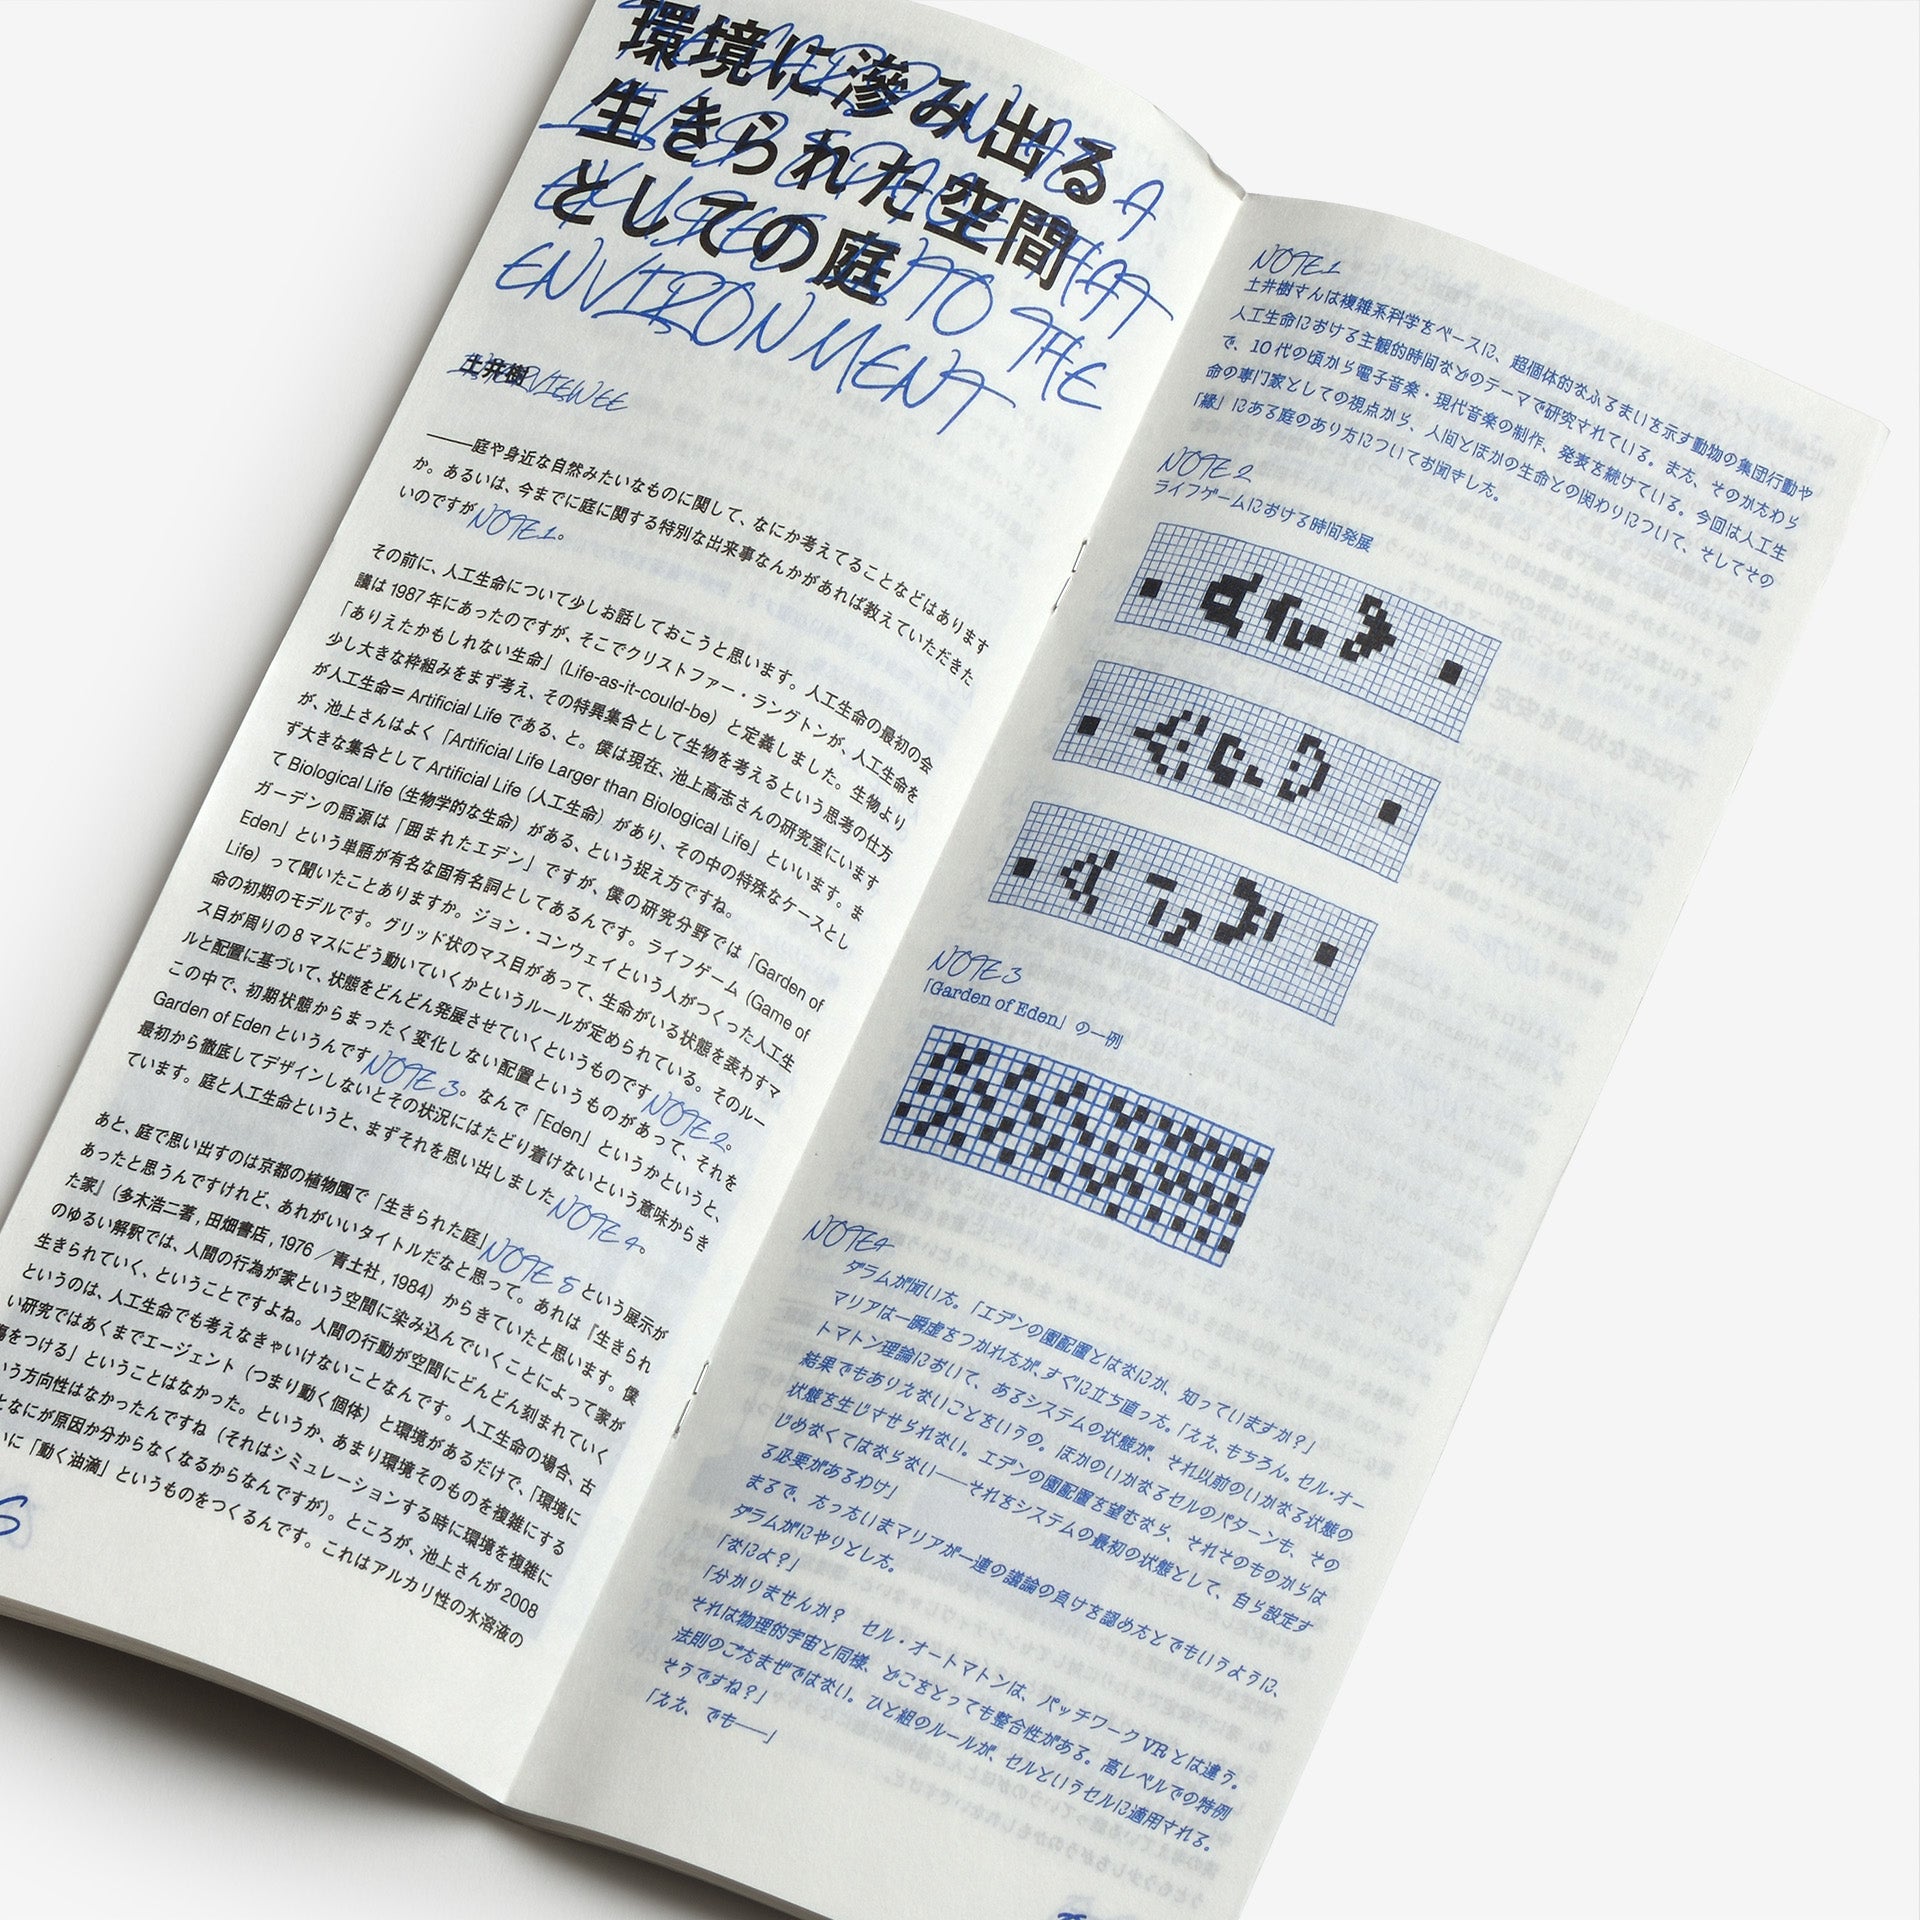 環境に滲み出る
生きられた空間
としての庭
THE GARDEN AS A
LIVED SPACE THAT
EXUDES INTO THE
ENVIRONMENT
土井樹
INTERVIEWEE
――庭や身近な自然みたいなものに関して、なにか考えてることなどはあります
か。あるいは、今までに庭に関する特別な出来事なんかがあれば教えていただきた
いのですがNOTE1。
その前に、人工生命について少しお話しておこうと思います。人工生命の最初の会
議は1987年にあったのですが、そこでクリストファー・ラングトンが、人工生命を
「ありえたかもしれない生命」(Life-as-it-could-be) と定義しました。生物より
少し大きな枠組みをまず考え、その特異集合として生物を考えるという思考の仕方
が人工生命＝Artificial Lifeである、と。僕は現在、池上高志さんの研究室にいます
が、池上さんはよく「Artificial Life Larger than Biological Life」といいます。ま
ず大きな集合としてArtificial Life (人工生命) があり、その中の特殊なケースとし
てBiological Life (生物学的な生命) がある、という捉え方ですね。
ガーデンの語源は「囲まれたエデン」ですが、僕の研究分野では「Garden of
Eden」という単語が有名な固有名詞としてあるんです。ライフゲーム (Game of
Life) って聞いたことありますか。ジョン・コンウェイという人がつくった人工生
命の初期のモデルです。グリッド状のマス目があって、生命がいる状態を表わすマ
ス目が周りの8マスにどう動いていくかというルールが定められている。そのルー
ルと配置に基づいて、状態をどんどん発展させていくというものですNOTE2。
この中で、初期状態からまったく変化しない配置というものがあって、それを
Garden of EdenというんですNOTE3。なんで「Eden」というかというと、
最初から徹底してデザインしないとその状況にはたどり着けないという意味からき
ています。庭と人工生命というと、まずそれを思い出しましたNOTE4。
あと、庭で思い出すのは京都の植物園で「生きられた庭」NOTE5という展示が
あったと思うんですけれど、あれがいいタイトルだなと思って。あれは『生きられ
た家』(多木浩二著, 田畑書店, 1976／青土社, 1984) からきていたと思います。僕
のゆるい解釈では、人間の行為が家という空間に染み込んでいくことによって家が
生きられていく、ということですよね。人間の行動が空間にどんどん刻まれていく
というのは、人工生命でも考えなきゃいけないことなんです。人工生命の場合、古
い研究ではあくまでエージェント (つまり動く個体) と環境があるだけで、「環境に
傷をつける」ということはなかった。というか、あまり環境そのものを複雑にする
いう方向性はなかったんですね (それはシミュレーションする時に環境を複雑に
となにが原因か分からなくなるからなんですが)。ところが、池上さんが2008
に「動く油滴」というものをつくるんです。これはアルカリ性の水溶液の
NOTE1
土井樹さんは複雑系科学をベースに、超個体的なふるまいを示す動物の集団行動や
人工生命における主観的時間などのテーマで研究されている。また、そのかたわら
で、10代の頃から電子音楽・現代音楽の制作、発表を続けている。今回は人工生
命の専門家としての視点から、人間とほかの生命との関わりについて、そしてその
「縁」にある庭のあり方についてお聞きした。
NOTE2
ライフゲームにおける時間発展
NOTE3
「Garden of Eden」の一例
NOTE4
ダラムが聞いた。「エデンの園配置とはなにか、知っていますか?」
マリアは一瞬虚をつかれたが、すぐに立ち直った。「ええ、もちろん。セル・オー
トマトン理論において、あるシステムの状態が、それ以前のいかなる状態の
結果でもありえないことをいうの。ほかのいかなるセルのパターンも、その
状態を生じさせられない。エデンの園配置を望むなら、それそのものからは
じめなくてはならない――それをシステムの最初の状態として、自ら設定す
る必要があるわけ」
まるで、たったいまマリアが一連の議論の負けを認めたとでもいうように、
ダラムがにやりとした。
「なによ?」
「分かりませんか? セル・オートマトンは、パッチワークVRとは違う。
それは物理的宇宙と同様、どこをとっても整合性がある。高レベルでの特例
法則のごたまぜではない。ひと組のルールが、セルというセルに適用される。
そうですね?」
「ええ、でも――」